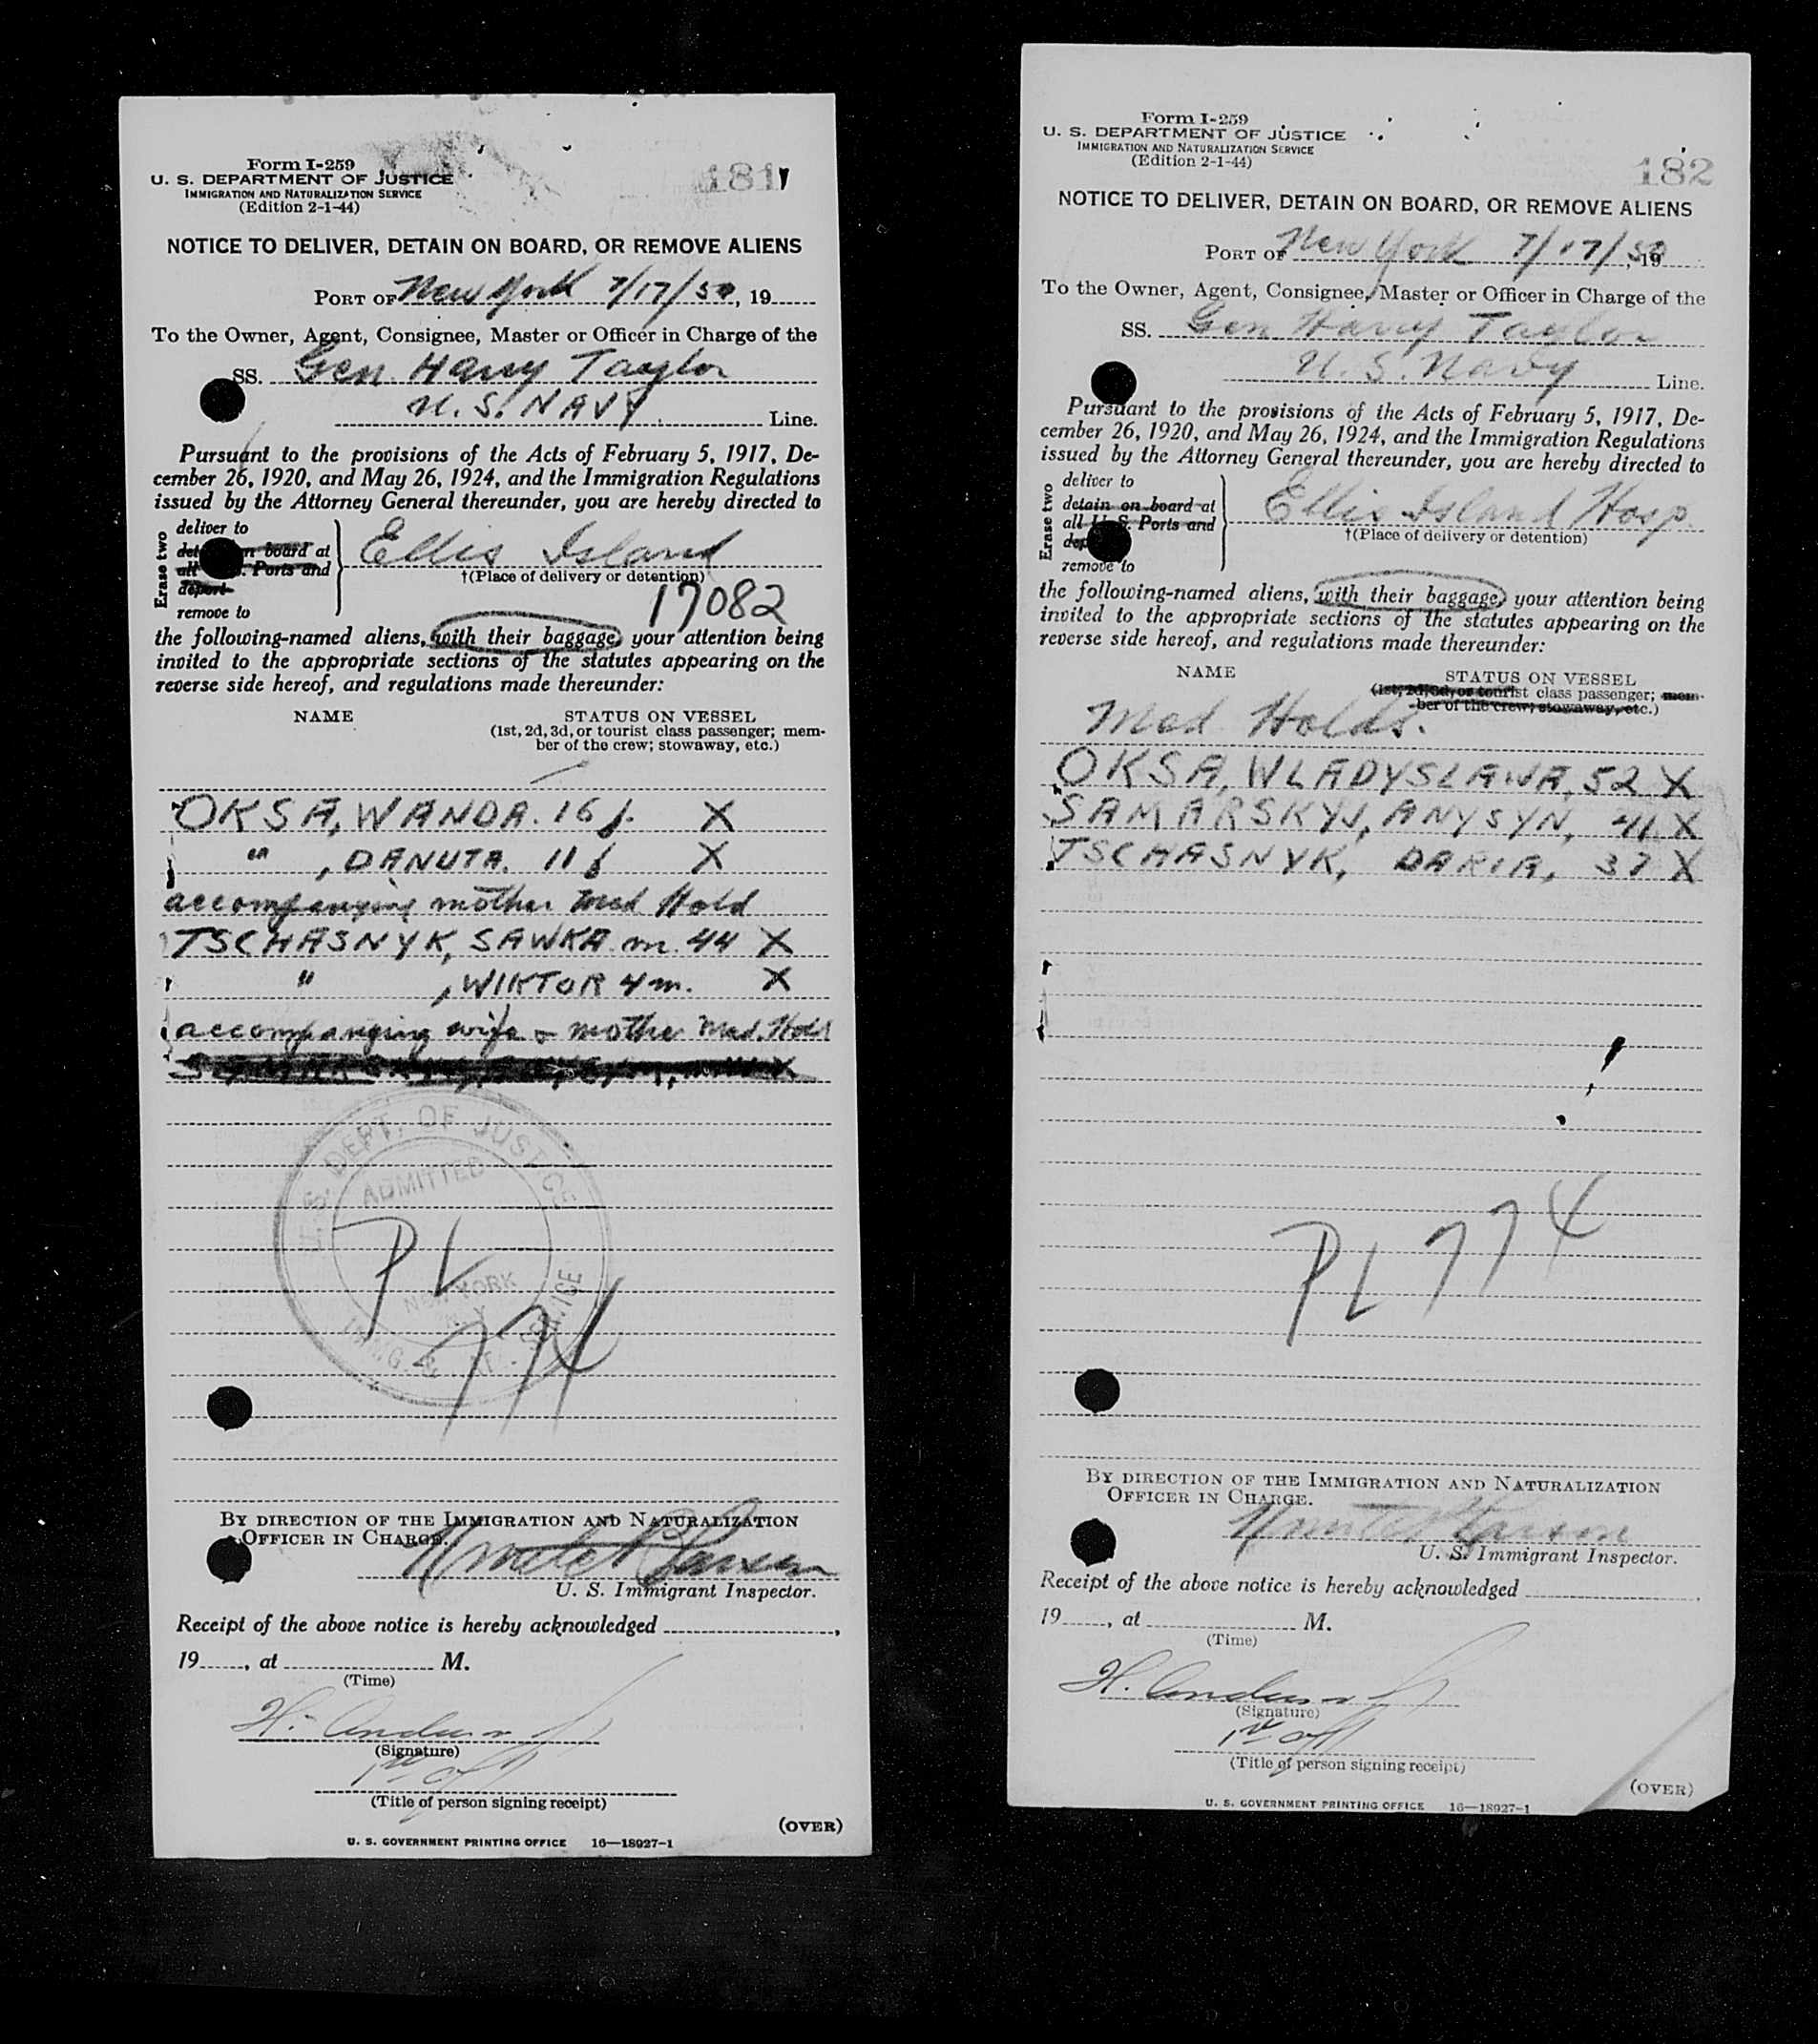 Form I-259
U. S. DEPARTMENT OF JUSTICE
IMMIGRATION AND NATURALIZATION SERVICE
(Edition 2-1-44)
181
NOTICE TO DELIVER, DETAIN ON BOARD, OR REMOVE ALIENS
PORT OF New York 7/17/50, 19
To the Owner, Agent, Consignee, Master or Officer in Charge of the
SS. Gen. Harry Taylor
U.S. NAVY Line.
Pursuant to the provisions of the Acts of February 5, 1917, De-
cember 26, 1920, and May 26, 1924, and the Immigration Regulations
issued by the Attorney General thereunder, you are hereby directed to
Erase two
deliver to
board at
all Ports and
deport
remove to
Ellis Island
†(Place of delivery or detention)
17082
the following-named aliens, with their baggage, your attention being
invited to the appropriate sections of the statutes appearing on the
reverse side hereof, and regulations made thereunder:
NAME STATUS ON VESSEL
(1st, 2d, 3d, or tourist class passenger; mem-
ber of the crew; stowaway, etc.)
OKSA, WANDA. 16 f. X
" , DANUTA. 11 f X
accompanying mother Med Hold
TSCHASNYK, SAWKA. m. 44 X
" , WIKTOR 4 m. X
accompanying wife & mother Med. Hold
U.S. DEPT. OF JUSTICE
ADMITTED
PL
NEW YORK
774
BY DIRECTION OF THE IMMIGRATION AND NATURALIZATION
OFFICER IN CHARGE.
U. S. Immigrant Inspector.
Receipt of the above notice is hereby acknowledged ,
19 , at M.
(Time)
H. Anderson
(Signature)
(Title of person signing receipt)
(OVER)
U. S. GOVERNMENT PRINTING OFFICE 16—18927-1
Form I-259
U. S. DEPARTMENT OF JUSTICE
IMMIGRATION AND NATURALIZATION SERVICE
(Edition 2-1-44)
182
NOTICE TO DELIVER, DETAIN ON BOARD, OR REMOVE ALIENS
PORT OF New York 7/17/50, 19
To the Owner, Agent, Consignee, Master or Officer in Charge of the
SS. Gen Harry Taylor
U.S. Navy Line.
Pursuant to the provisions of the Acts of February 5, 1917, De-
cember 26, 1920, and May 26, 1924, and the Immigration Regulations
issued by the Attorney General thereunder, you are hereby directed to
Erase two
deliver to
detain on board at
all U. S. Ports and
remove to
Ellis Island Hosp.
†(Place of delivery or detention)
the following-named aliens, with their baggage, your attention being
invited to the appropriate sections of the statutes appearing on the
reverse side hereof, and regulations made thereunder:
NAME STATUS ON VESSEL
(1st, 2d, 3d, or tourist class passenger; mem-
ber of the crew; stowaway, etc.)
Med Holds.
OKSA, WLADYSLAWA, 52 X
SAMARSKYJ, ANYSYN, 41 X
TSCHASNYK, DARIA, 37 X
PL 774
BY DIRECTION OF THE IMMIGRATION AND NATURALIZATION
OFFICER IN CHARGE.
U. S. Immigrant Inspector.
Receipt of the above notice is hereby acknowledged ,
19 , at M.
(Time)
H. Anderson
(Signature)
(Title of person signing receipt)
(OVER)
U. S. GOVERNMENT PRINTING OFFICE 16—18927-1